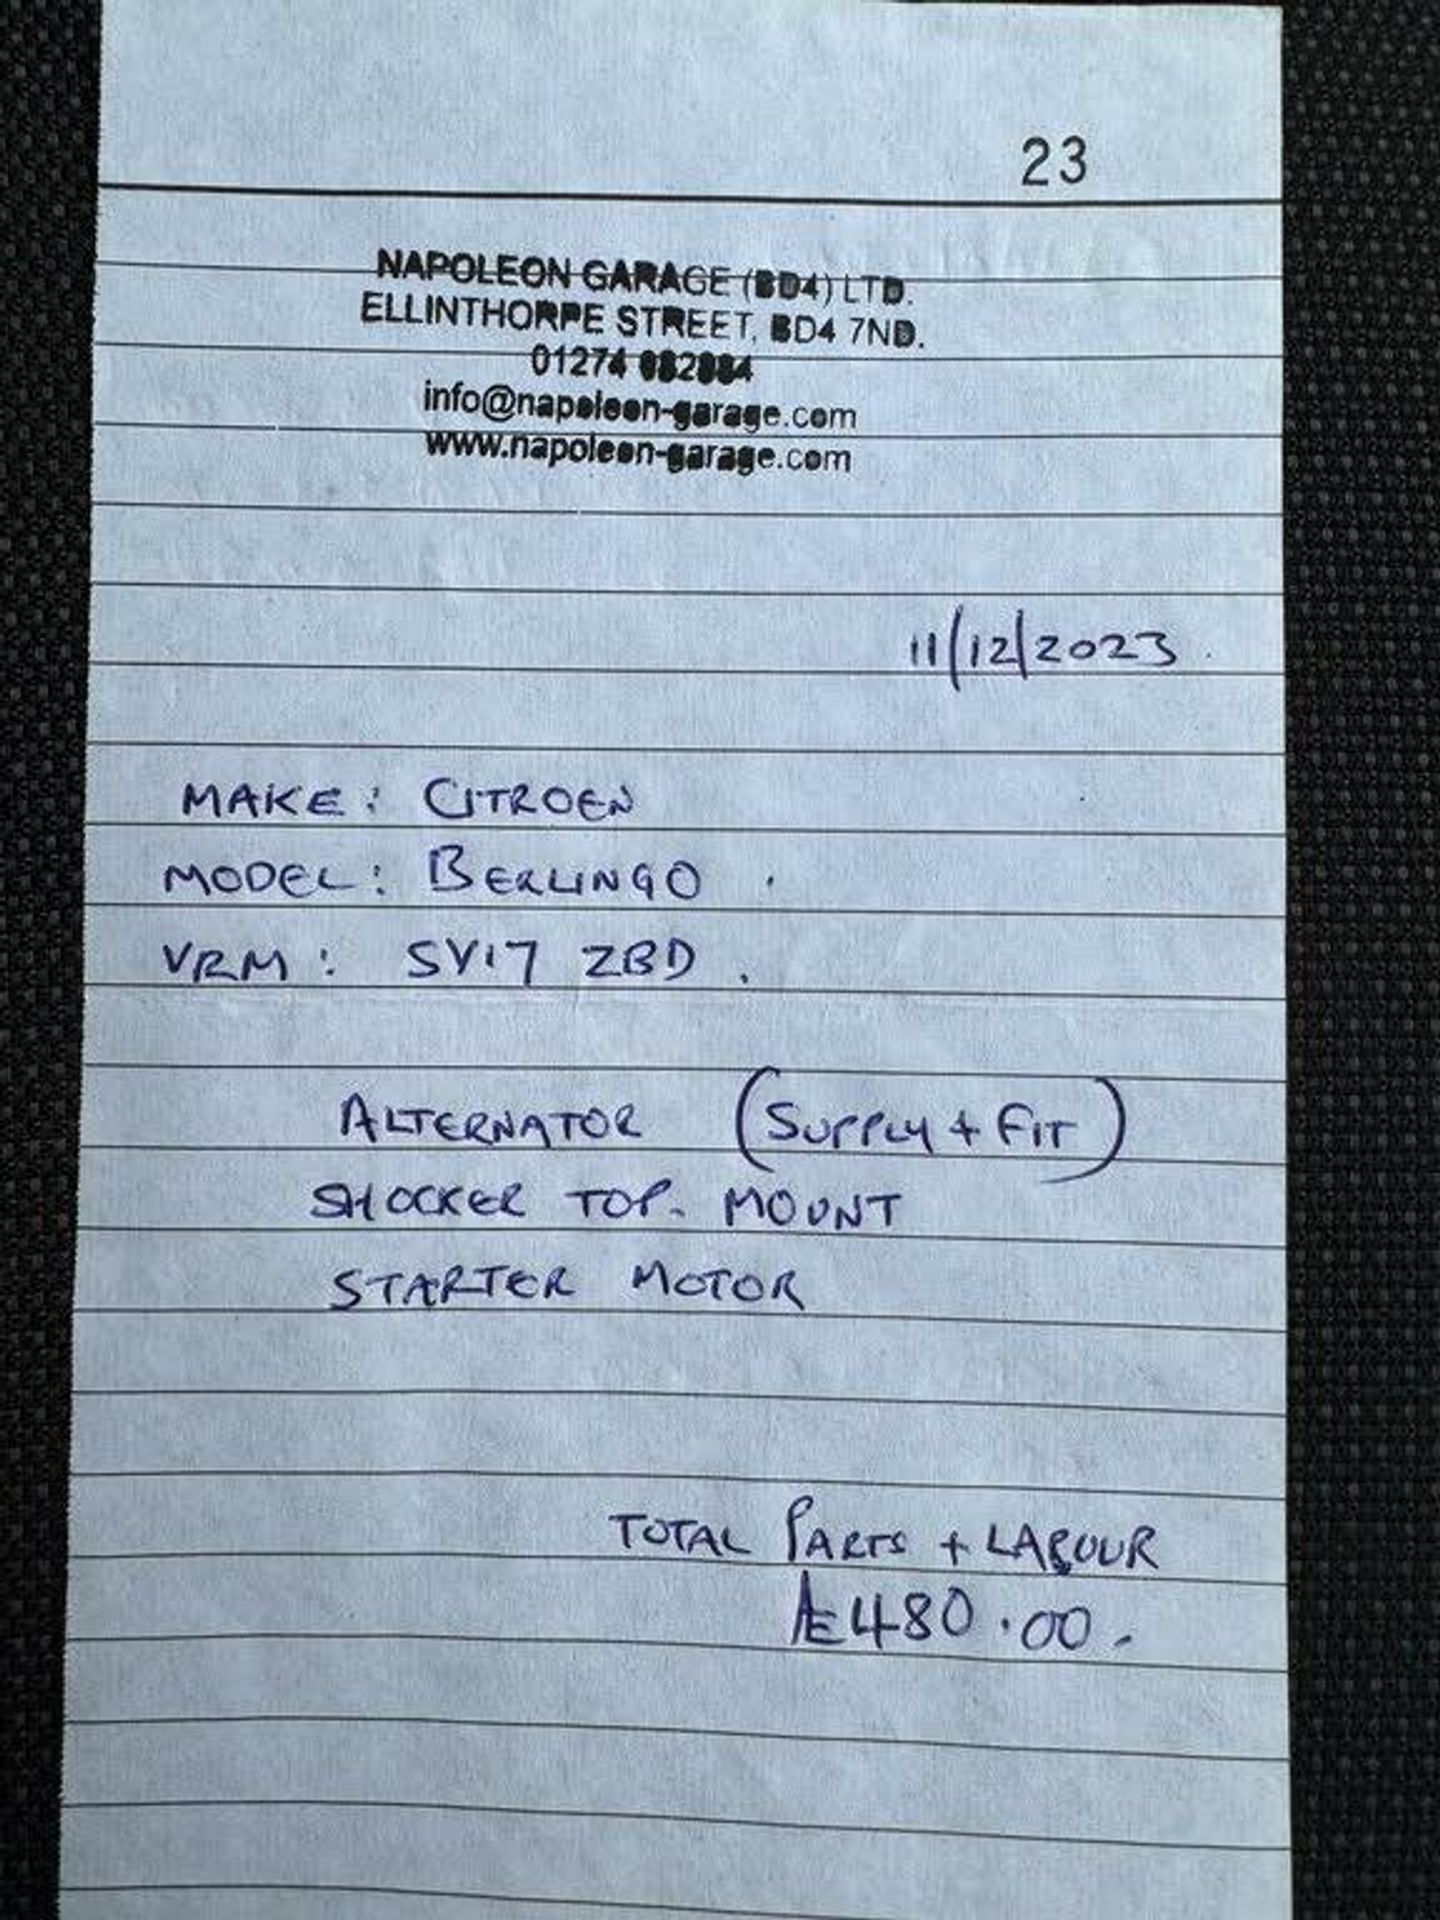 23
NAPOLEON GARAGE (BD4) LTD.
ELLINTHORPE STREET, BD4 7ND.
01274
info@napoleon-garage.com
www.napoleon-garage.com
11/12/2023
MAKE: CITROEN
MODEL: BERLINGO
VRM: SV17 ZBD.
ALTERNATOR (SUPPLY + FIT)
SHOCKER TOP. MOUNT
STARTER MOTOR
TOTAL PARTS + LABOUR
£480.00.